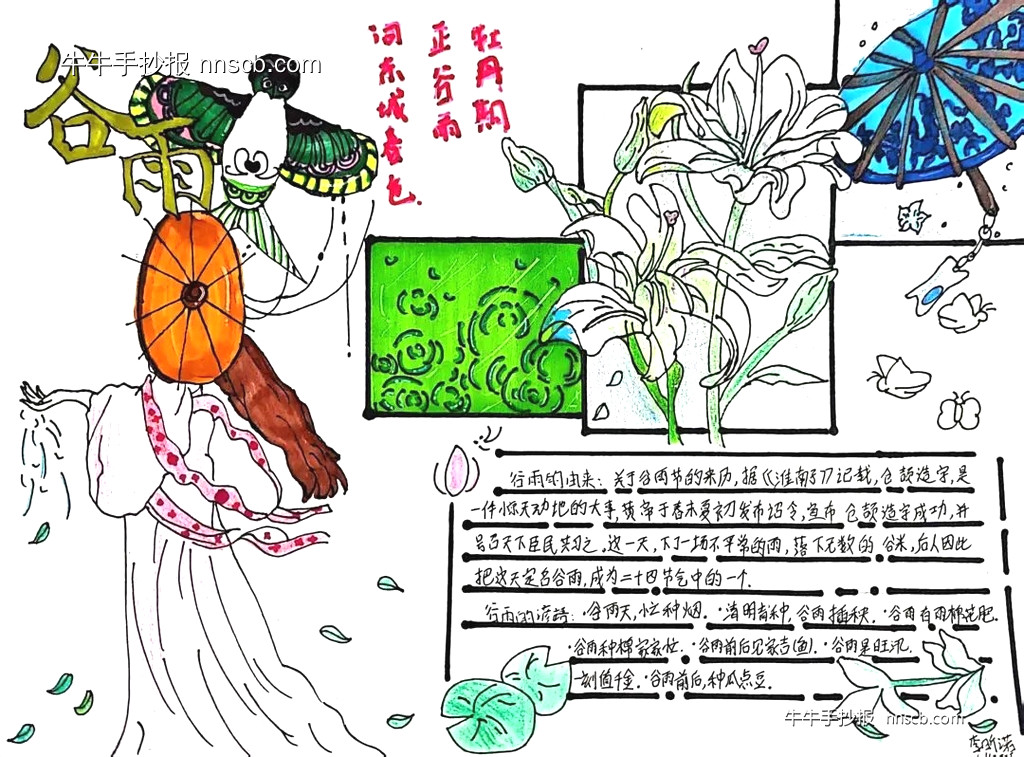 牛牛手抄报 nnscb.com
谷雨
牡丹期
正谷雨
词东城春色.
谷雨的由来: 关于谷雨节的来历,据《淮南子》记载,仓颉造字,是
一件惊天动地的大事,黄帝于春末夏初发布诏令,宣布仓颉造字成功,并
号召天下臣民共习之.这一天,下了一场不平常的雨,落下无数的谷米,后人因此
把这天定名谷雨,成为二十四节气中的一个.
谷雨的谚语: ·谷雨天,忙种烟. ·清明高种,谷雨插秧. ·谷雨有雨棉花肥.
·谷雨种棉家家忙. ·谷雨前后见家吉(鱼). ·谷雨是旺汛,
一刻值千金. ·谷雨前后,种瓜点豆.
牛牛手抄报 nnscb.com